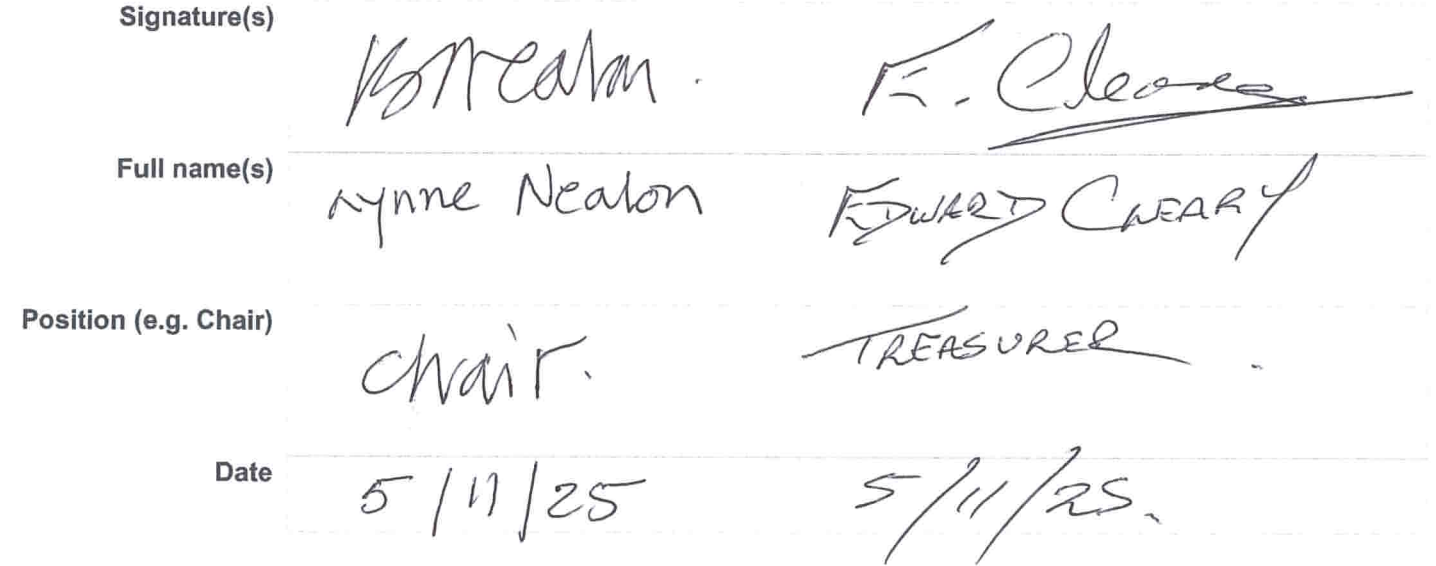 Signature(s) E. Cleary
Full name(s) Lynne Nealon EDWARD CLEARY
Position (e.g. Chair) Chair. TREASURER.
Date 5/11/25 5/11/25.